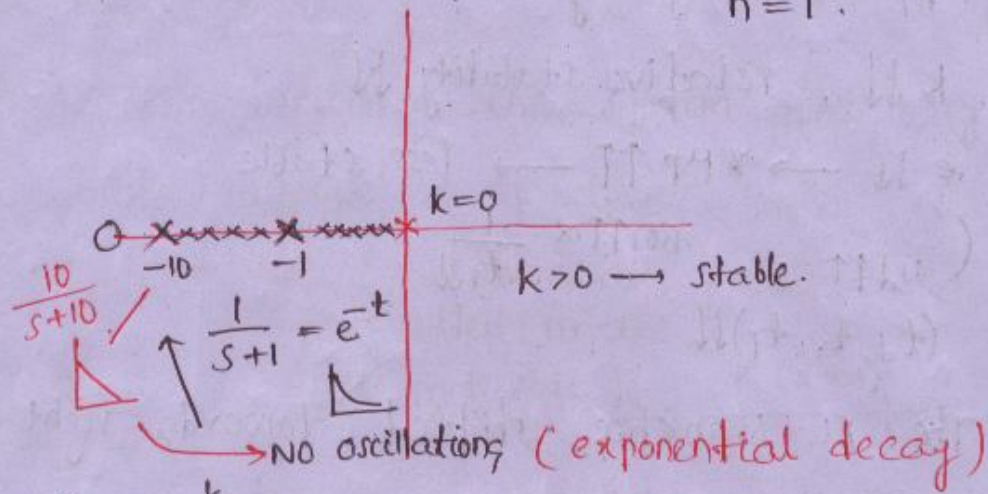 n = 1 .
k=0
-10 -1
k >0 → stable.
10/(s+10)
1/(s+1) = e^-t
→ NO oscillations (exponential decay)
k